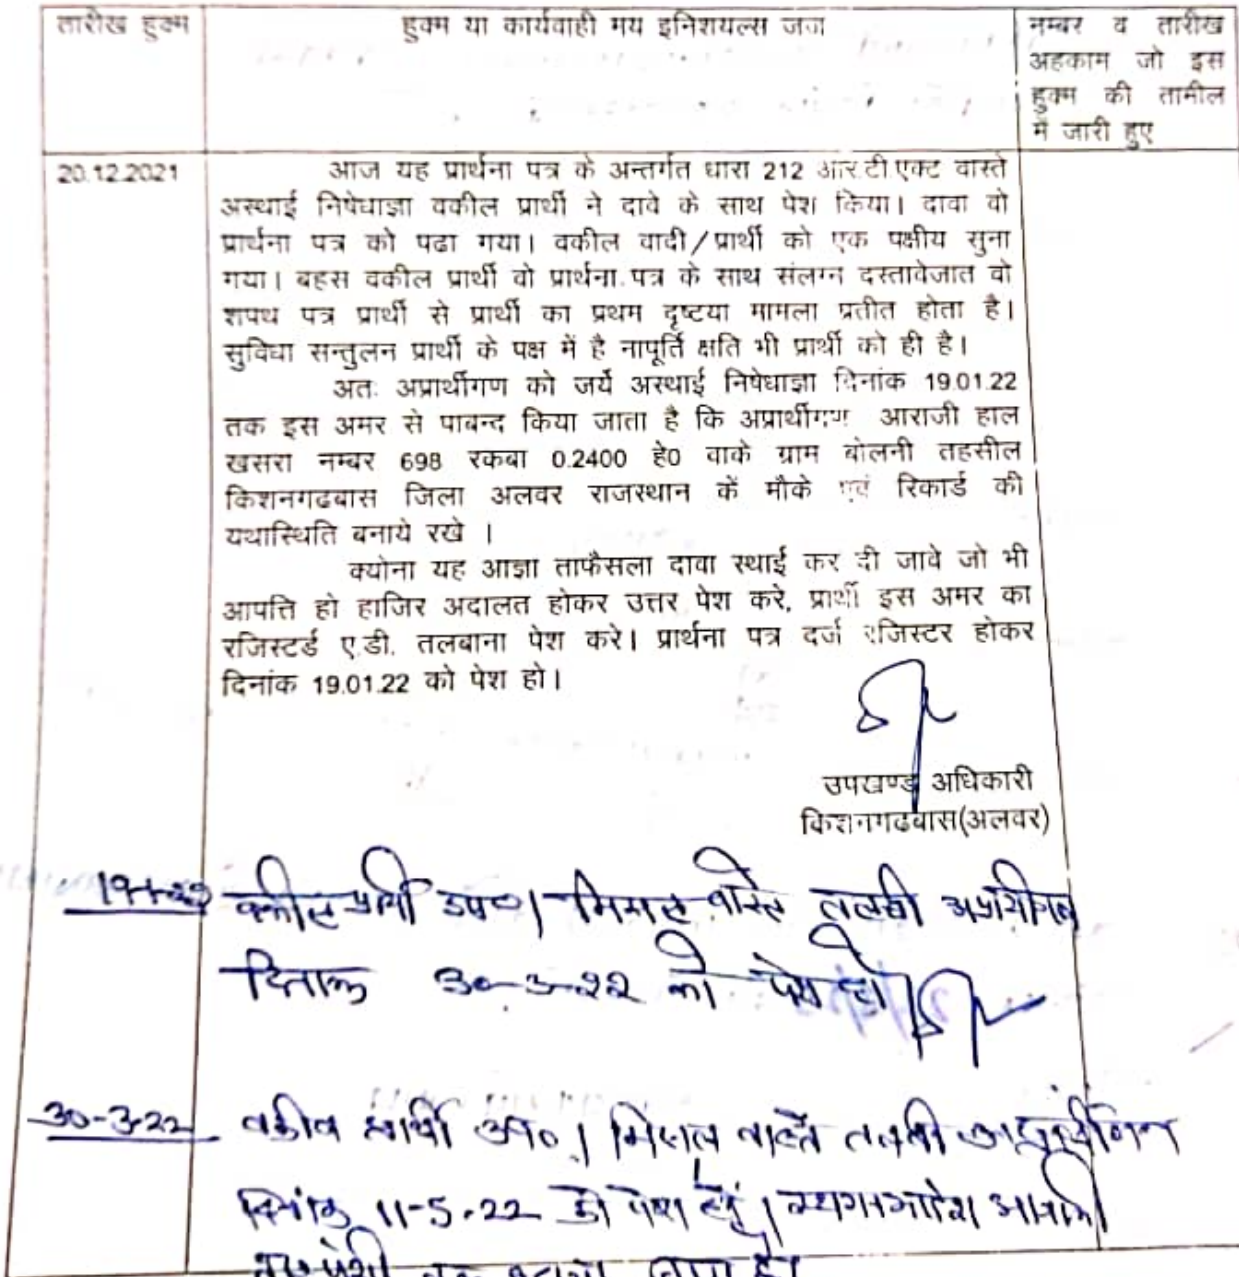 तारीख हुक्म
हुक्म या कार्यवाही मय इनिशयल्स जज
नम्बर व तारीख
अहकाम जो इस
हुक्म की तामील
में जारी हुए
20.12.2021
आज यह प्रार्थना पत्र के अन्तर्गत धारा 212 आर.टी.एक्ट वास्ते
अस्थाई निषेधाज्ञा वकील प्रार्थी ने दावे के साथ पेश किया। दावा वो
प्रार्थना पत्र को पढा गया। वकील वादी/प्रार्थी को एक पक्षीय सुना
गया। बहस वकील प्रार्थी वो प्रार्थना.पत्र के साथ संलग्न दस्तावेजात वो
शपथ पत्र प्रार्थी से प्रार्थी का प्रथम दृष्टया मामला प्रतीत होता है।
सुविधा सन्तुलन प्रार्थी के पक्ष में है नापूर्ति क्षति भी प्रार्थी को ही है।
अतः अप्रार्थीगण को जर्ये अस्थाई निषेधाज्ञा दिनांक 19.01.22
तक इस अमर से पाबन्द किया जाता है कि अप्रार्थीगण आराजी हाल
खसरा नम्बर 698 रकबा 0.2400 हे0 वाके ग्राम बोलनी तहसील
किशनगढबास जिला अलवर राजस्थान के मौके एवं रिकार्ड की
यथास्थिति बनाये रखे ।
क्योना यह आज्ञा ताफैसला दावा स्थाई कर दी जावे जो भी
आपत्ति हो हाजिर अदालत होकर उत्तर पेश करे, प्रार्थी इस अमर का
रजिस्टर्ड ए.डी. तलबाना पेश करे। प्रार्थना पत्र दर्ज रजिस्टर होकर
दिनांक 19.01.22 को पेश हो।
उपखण्ड अधिकारी
किशनगढबास(अलवर)
19-1-22 वकील प्रार्थी उप०। मिसल वास्ते तलबी अप्रार्थीगण
दिनांक 30-3-22 को पेश हो।
30-3-22 वकील प्रार्थी उप०। मिसल वास्ते तलबी अप्रार्थीगण
दिनांक 11-5-22 को पेश हो। स्थगन आदेश आगामी